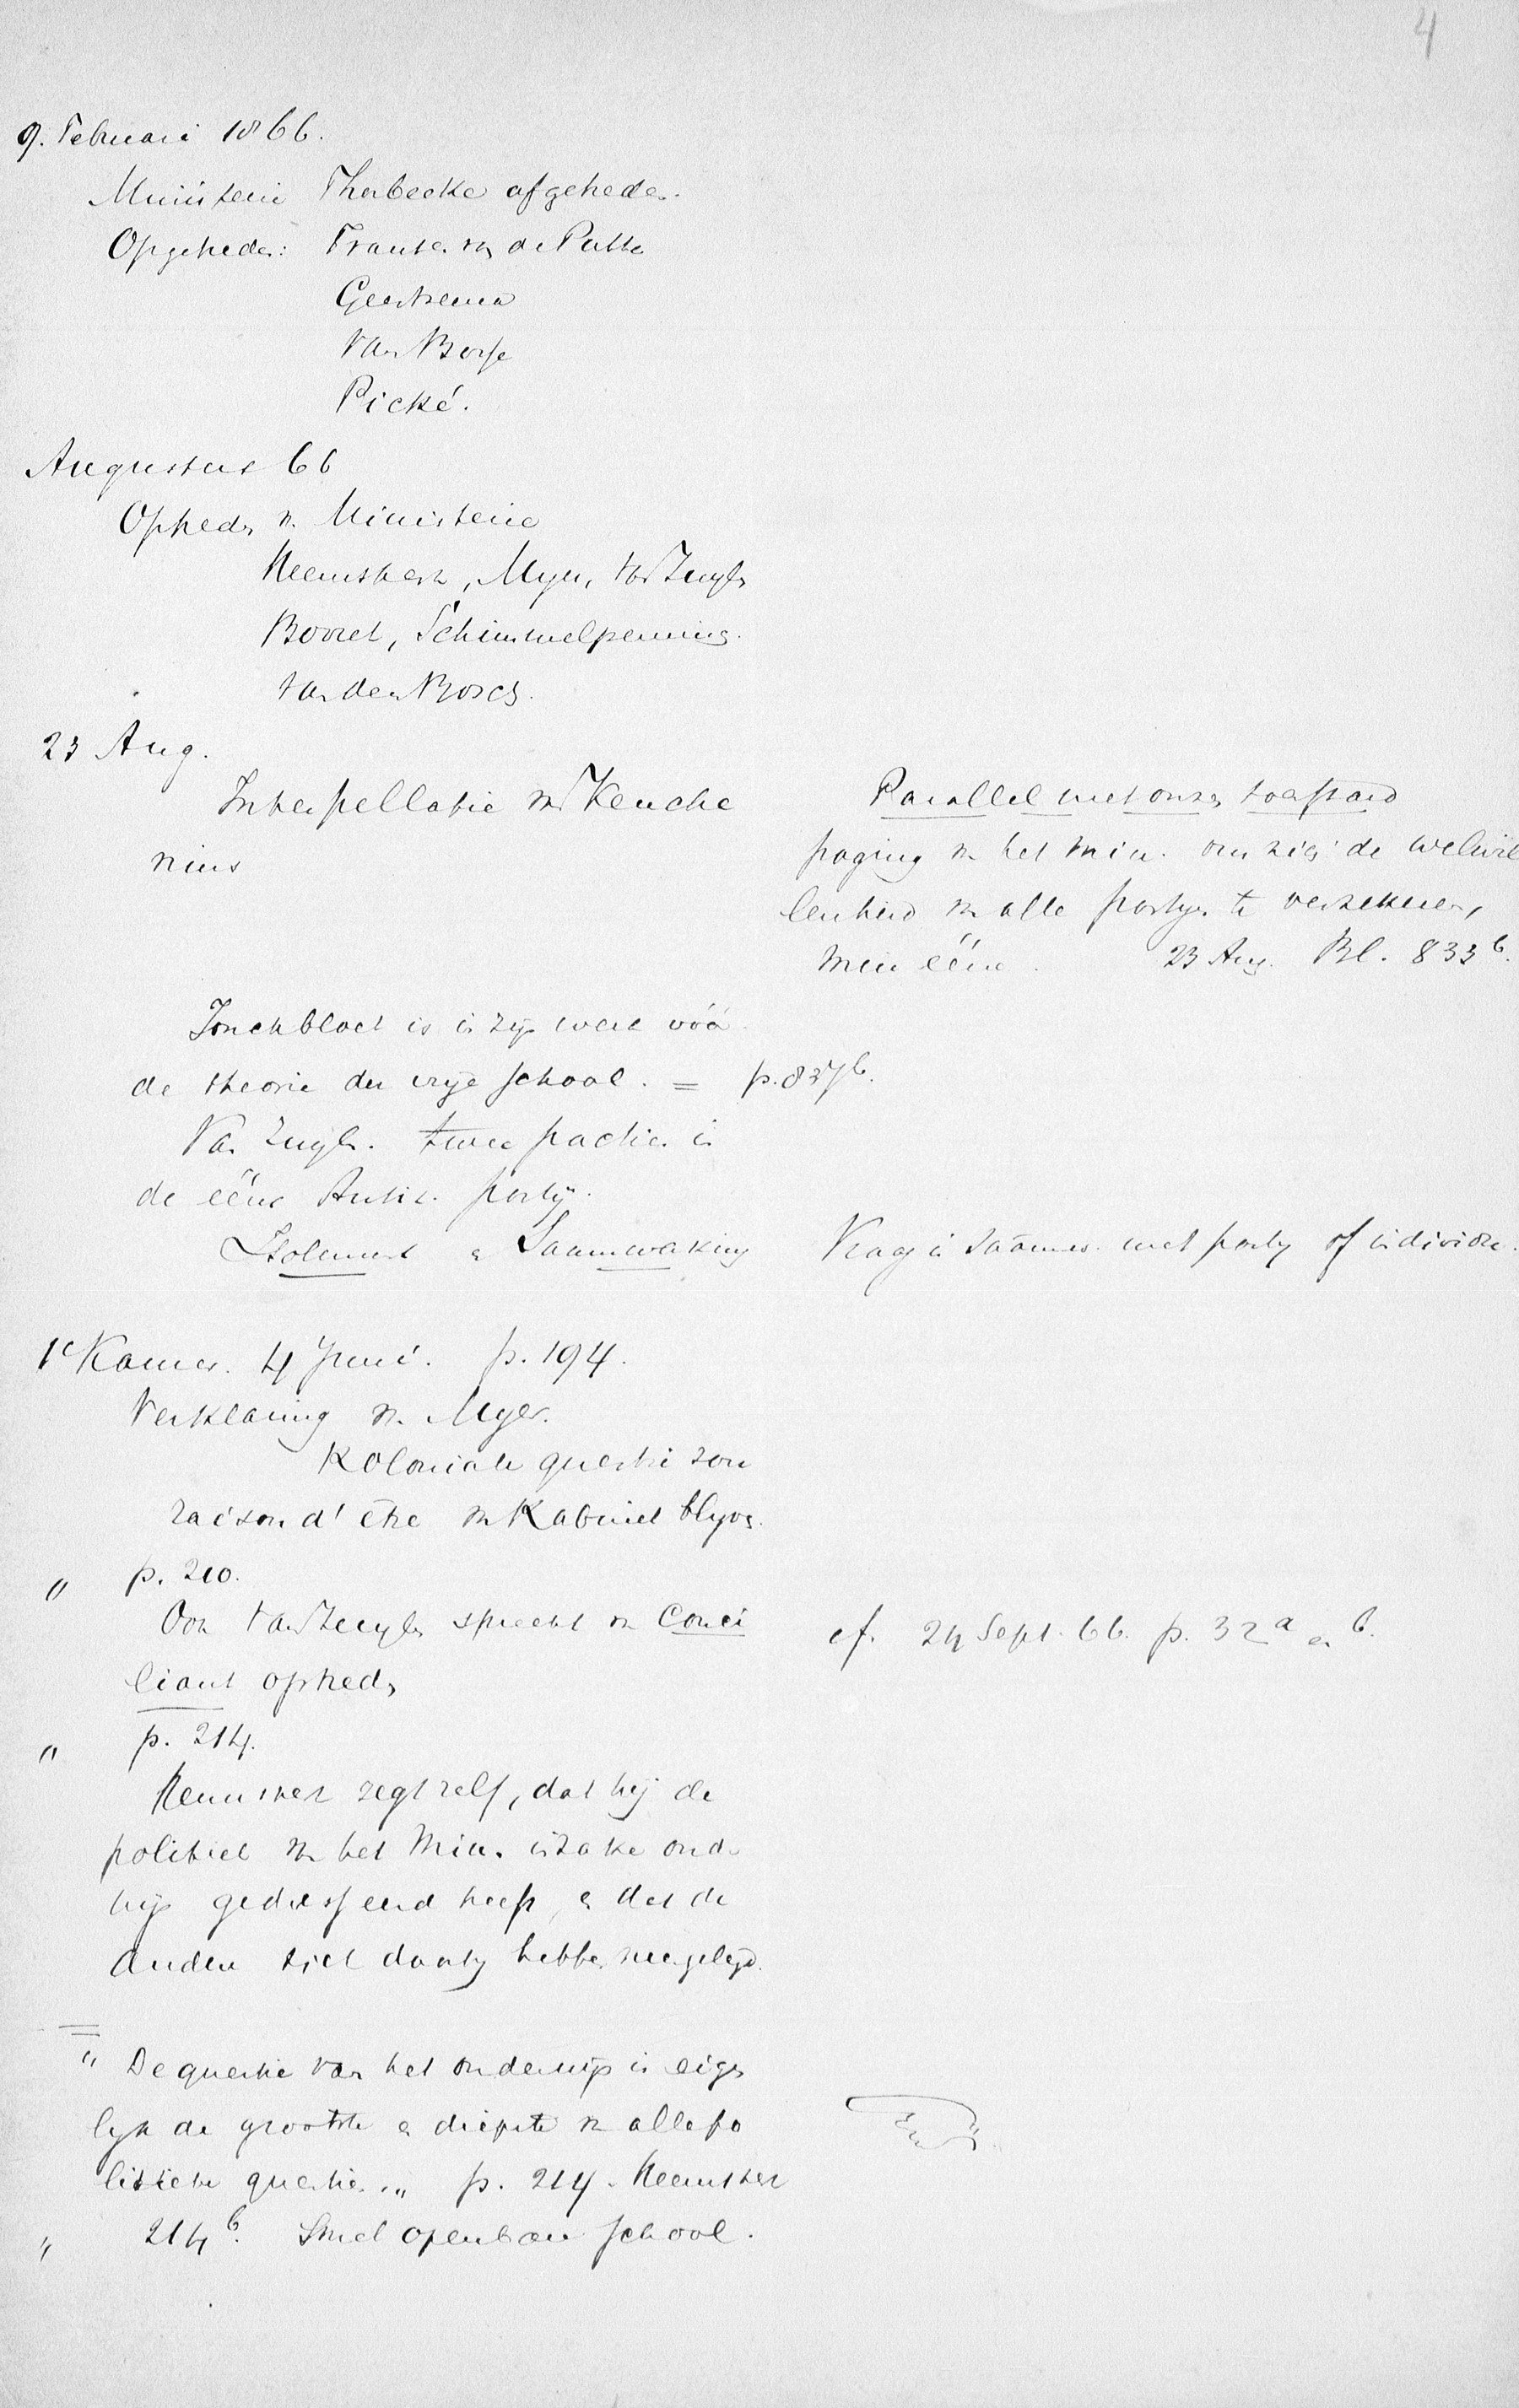 4
9. Februari 1866.
Ministerie Thorbecke afgetreden.
Opgetreden: Fransen v. de Putte
Geertsema
Van Bosse
Pické.
Augustus 66
Optreden v. Ministerie
Heemskerk, Myer, van Zuylen
Borret, Schimmelpenning.
van den Bosch.
23 Aug.
Interpellatie van Keuche
nius
Parallel met onzen toestand
poging v. het Min. om zich de welwil
lenheid v. alle partyen te verzekeren,
min ééne. 23 Aug. Bl. 833b.
Jonckbloet is in zijn werk vóór
de theorie der vrije school. = p. 837b.
Van Zuylen. twee fractien in
de ééne Antir. partij.
Isolement en Saamwerking
Vraag is saamw. met party of individu.
1e Kamer. 4 Juni. p. 194.
Verklaring v. Myer.
Koloniale questie zou
raison d'être v. Kabinet blyven.
" p. 210.
Ook van Zuylen spreekt v. Conci
liant optreden
cf. 24 Sept. 66. p. 32a en b.
" p. 214.
Heemskerk zegt zelf, dat hij de
politiek v. het Min. inzake onder
wijs heeft, en dat de
anderen zich daarby hebben neergelegd.
" De questie van het onderwijs is eigen
lyk de grootste en diepste v. alle po
litieke questien." p. 214. Heemskerk
" 214b. openbare school.